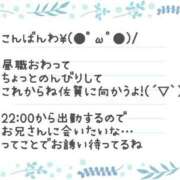 こんばんわ¥(●°ω°●)/
昼職おわって
ちょっとのんびりして
これからね佐賀に向かうよ!(´▽`)
22:00から出勤するので
お兄さんに会いたいな…
ってことでお誘い待ってるね